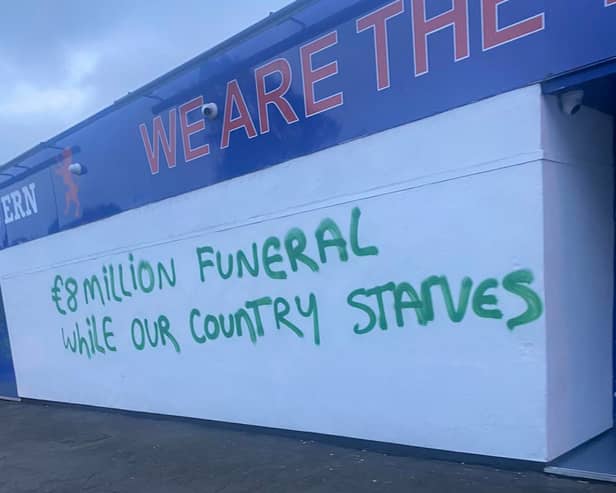 WE ARE THE
ERN
£8 MILLION FUNERAL
WHILE OUR COUNTRY STARVES